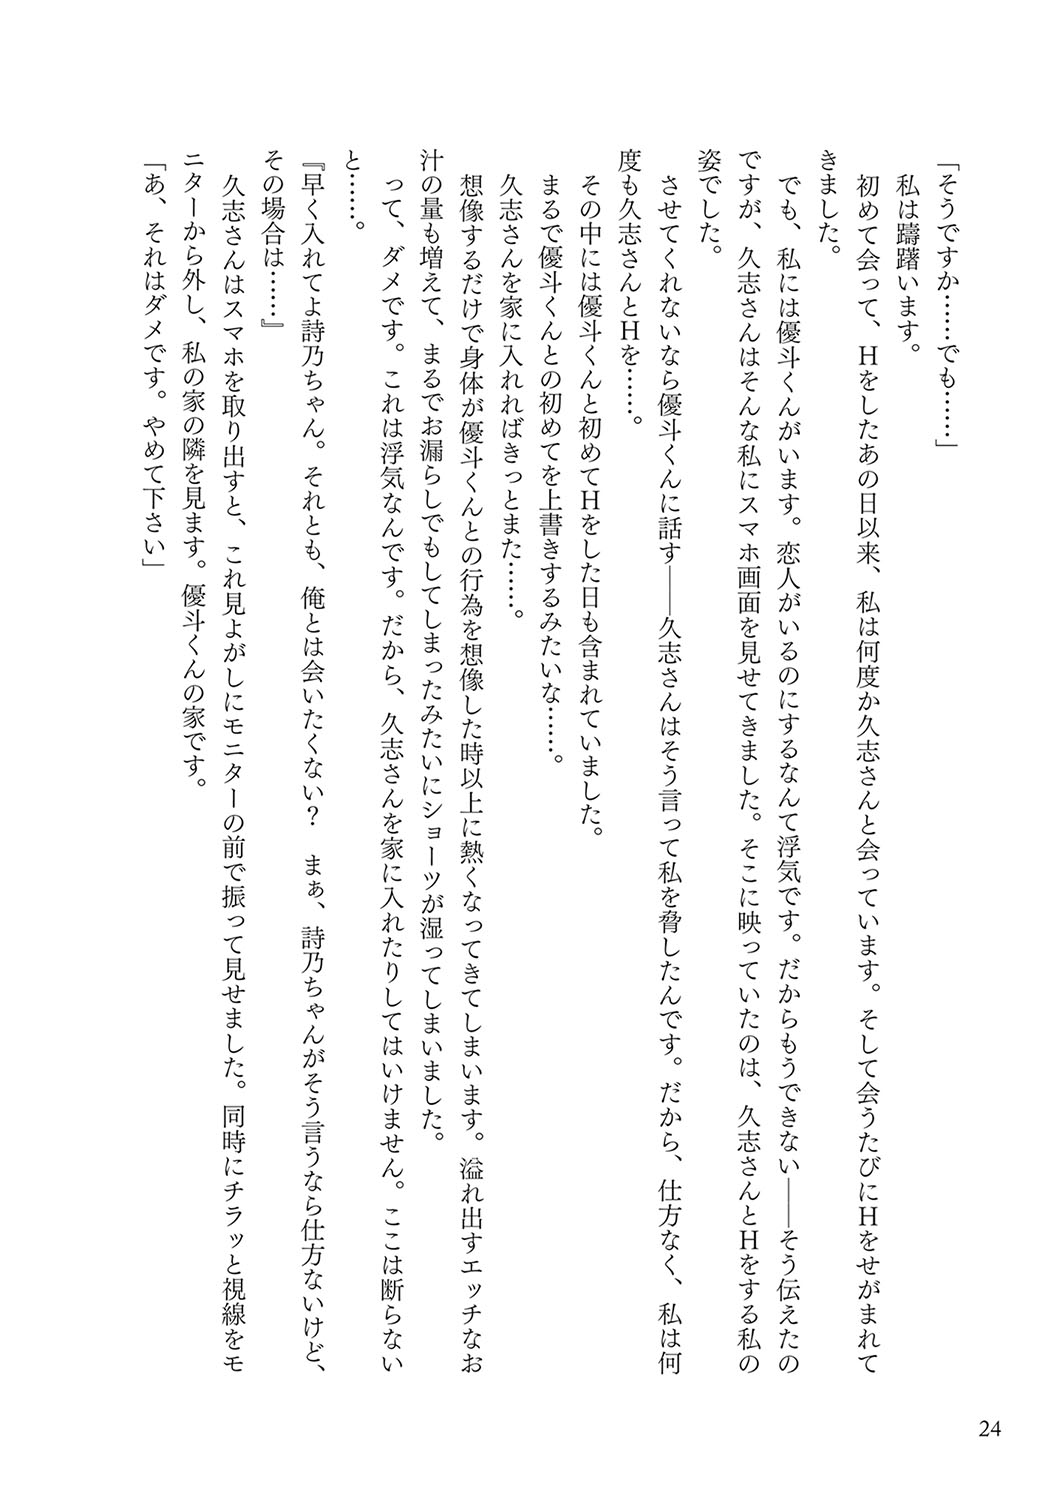 「そうですか……でも……」
私は躊躇います。
初めて会って、Hをしたあの日以来、私は何度か久志さんと会っています。そして会うたびにHをせがまれて
きました。
でも、私には優斗くんがいます。恋人がいるのにするなんて浮気です。だからもうできない――そう伝えたの
ですが、久志さんはそんな私にスマホ画面を見せてきました。そこに映っていたのは、久志さんとHをする私の
姿でした。
させてくれないなら優斗くんに話す――久志さんはそう言って私を脅したんです。だから、仕方なく、私は何
度も久志さんとHを……。
その中には優斗くんと初めてHをした日も含まれていました。
まるで優斗くんとの初めてを上書きするみたいな……。
久志さんを家に入れればきっとまた……。
想像するだけで身体が優斗くんとの行為を想像した時以上に熱くなってきてしまいます。溢れ出すエッチなお
汁の量も増えて、まるでお漏らしでもしてしまったみたいにショーツが湿ってしまいました。
って、ダメです。これは浮気なんです。だから、久志さんを家に入れたりしてはいけません。ここは断らない
と……。
『早く入れてよ詩乃ちゃん。それとも、俺とは会いたくない？　まぁ、詩乃ちゃんがそう言うなら仕方ないけど、
その場合は……』
久志さんはスマホを取り出すと、これ見よがしにモニターの前で振って見せました。同時にチラッと視線をモ
ニターから外し、私の家の隣を見ます。優斗くんの家です。
「あ、それはダメです。やめて下さい」
24